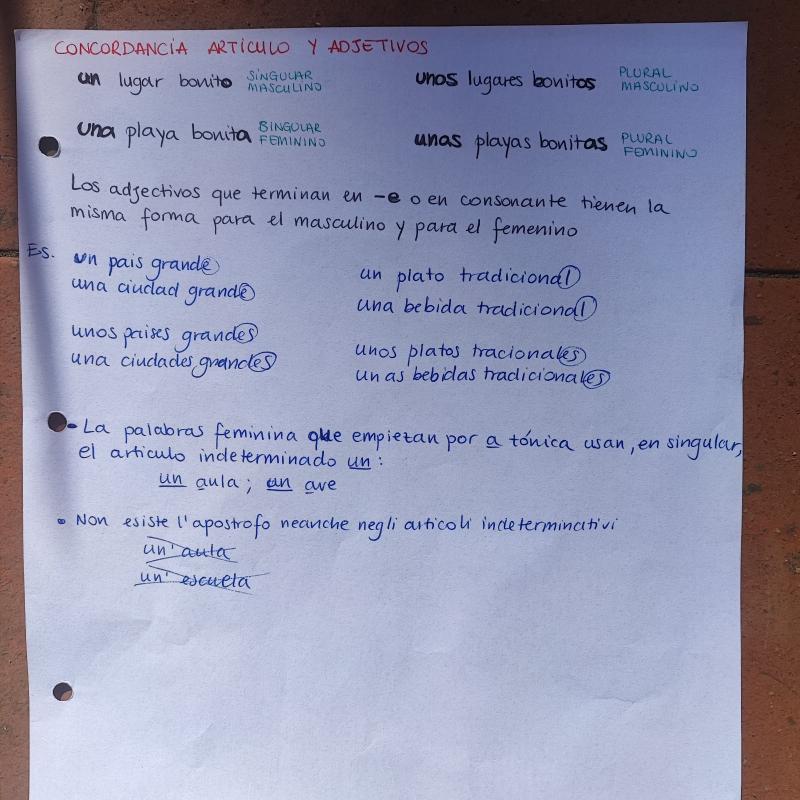 CONCORDANCIA ARTICULO Y ADJETIVOS
un lugar bonito SINGULAR MASCULINO
unos lugares bonitos PLURAL MASCULINO
una playa bonita SINGULAR FEMININO
unas playas bonitas PLURAL FEMININO
Los adjectivos que terminan en -e o en consonante tienen la
misma forma para el masculino y para el femenino
Es. un pais grande
una ciudad grande
unos paises grandes
una ciudades grandes
un plato tradicional
una bebida tradicional
unos platos tracionales
unas bebidas tradicionales
- La palabras feminina que empiezan por a tónica usan, en singular,
el articulo indeterminado un:
un aula; un ave
• Non esiste l'apostrofo neanche negli articoli indeterminativi
un' aula
un' escuela